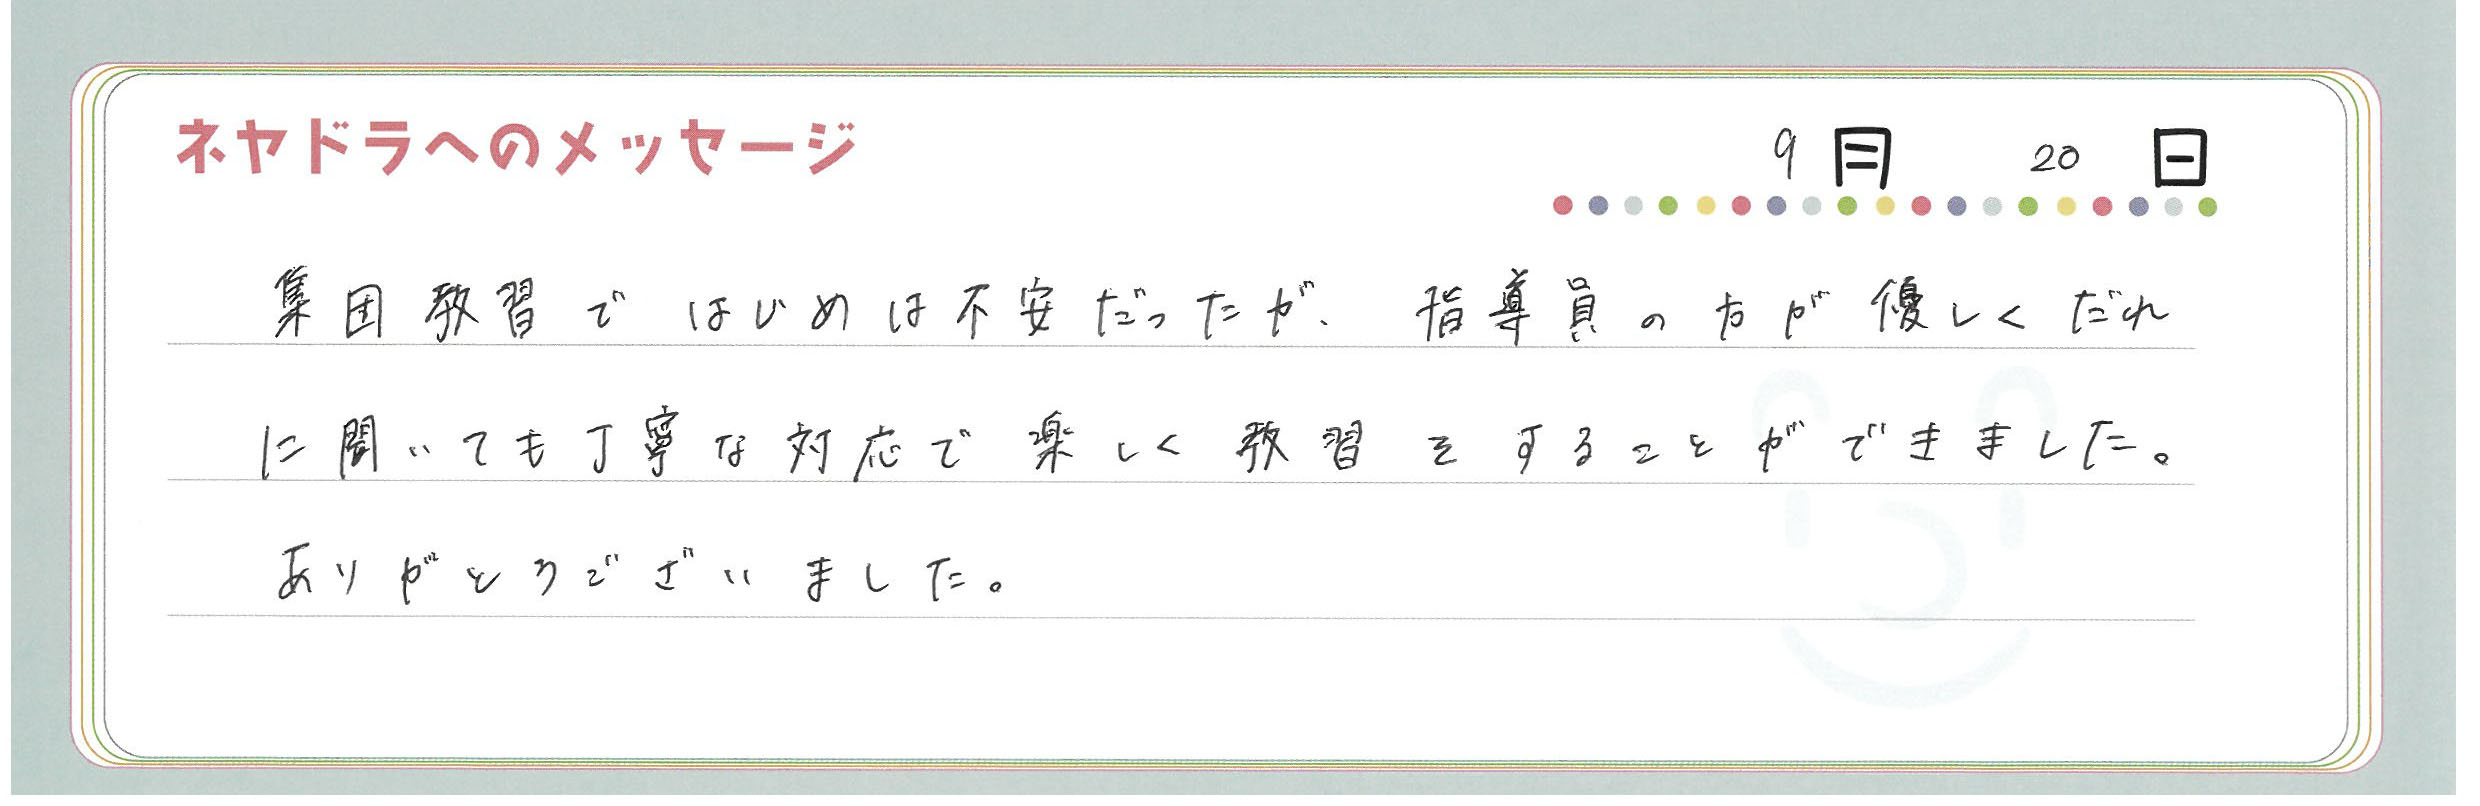 ネヤドラへのメッセージ
9月 20日
集団教習ではじめは不安だったが、指導員の方が優しくだれ
に聞いても丁寧な対応で楽しく教習をすることができました。
ありがとうございました。